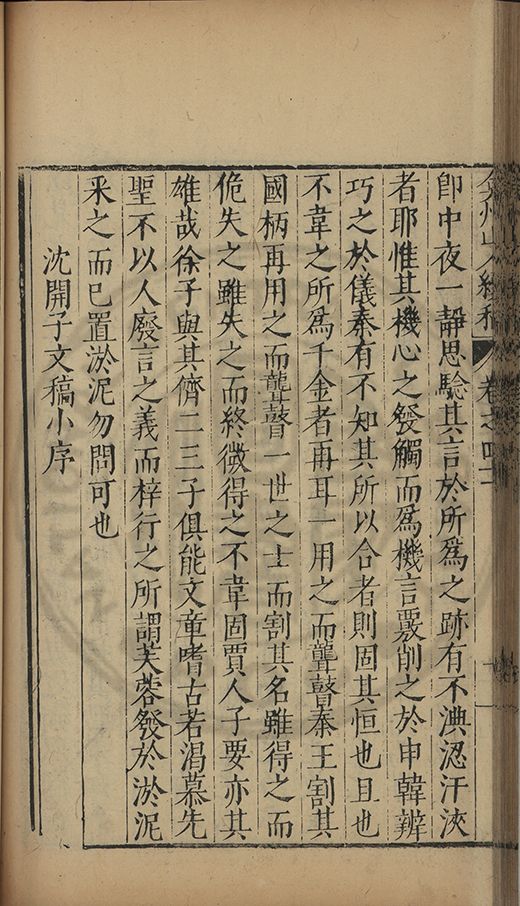 弇州山人續稿 卷之四二
卽中夜一靜思驗其言於所爲之跡有不淟涊汗浹
者耶惟其機心之發觸而爲機言覈削之於申韓辨
巧之於儀秦有不知其所以合者則固其恒也且也
不韋之所爲千金者再耳一用之而聾瞽秦王割其
國柄再用之而聾瞽一世之士而割其名雖得之而
佹失之雖失之而終徼得之不韋固賈人子要亦其
雄哉徐子與其儕二三子俱能文章嗜古若渴慕先
聖不以人廢言之義而梓行之所謂芙蓉發於淤泥
采之而已置淤泥勿問可也
沈開子文稿小序